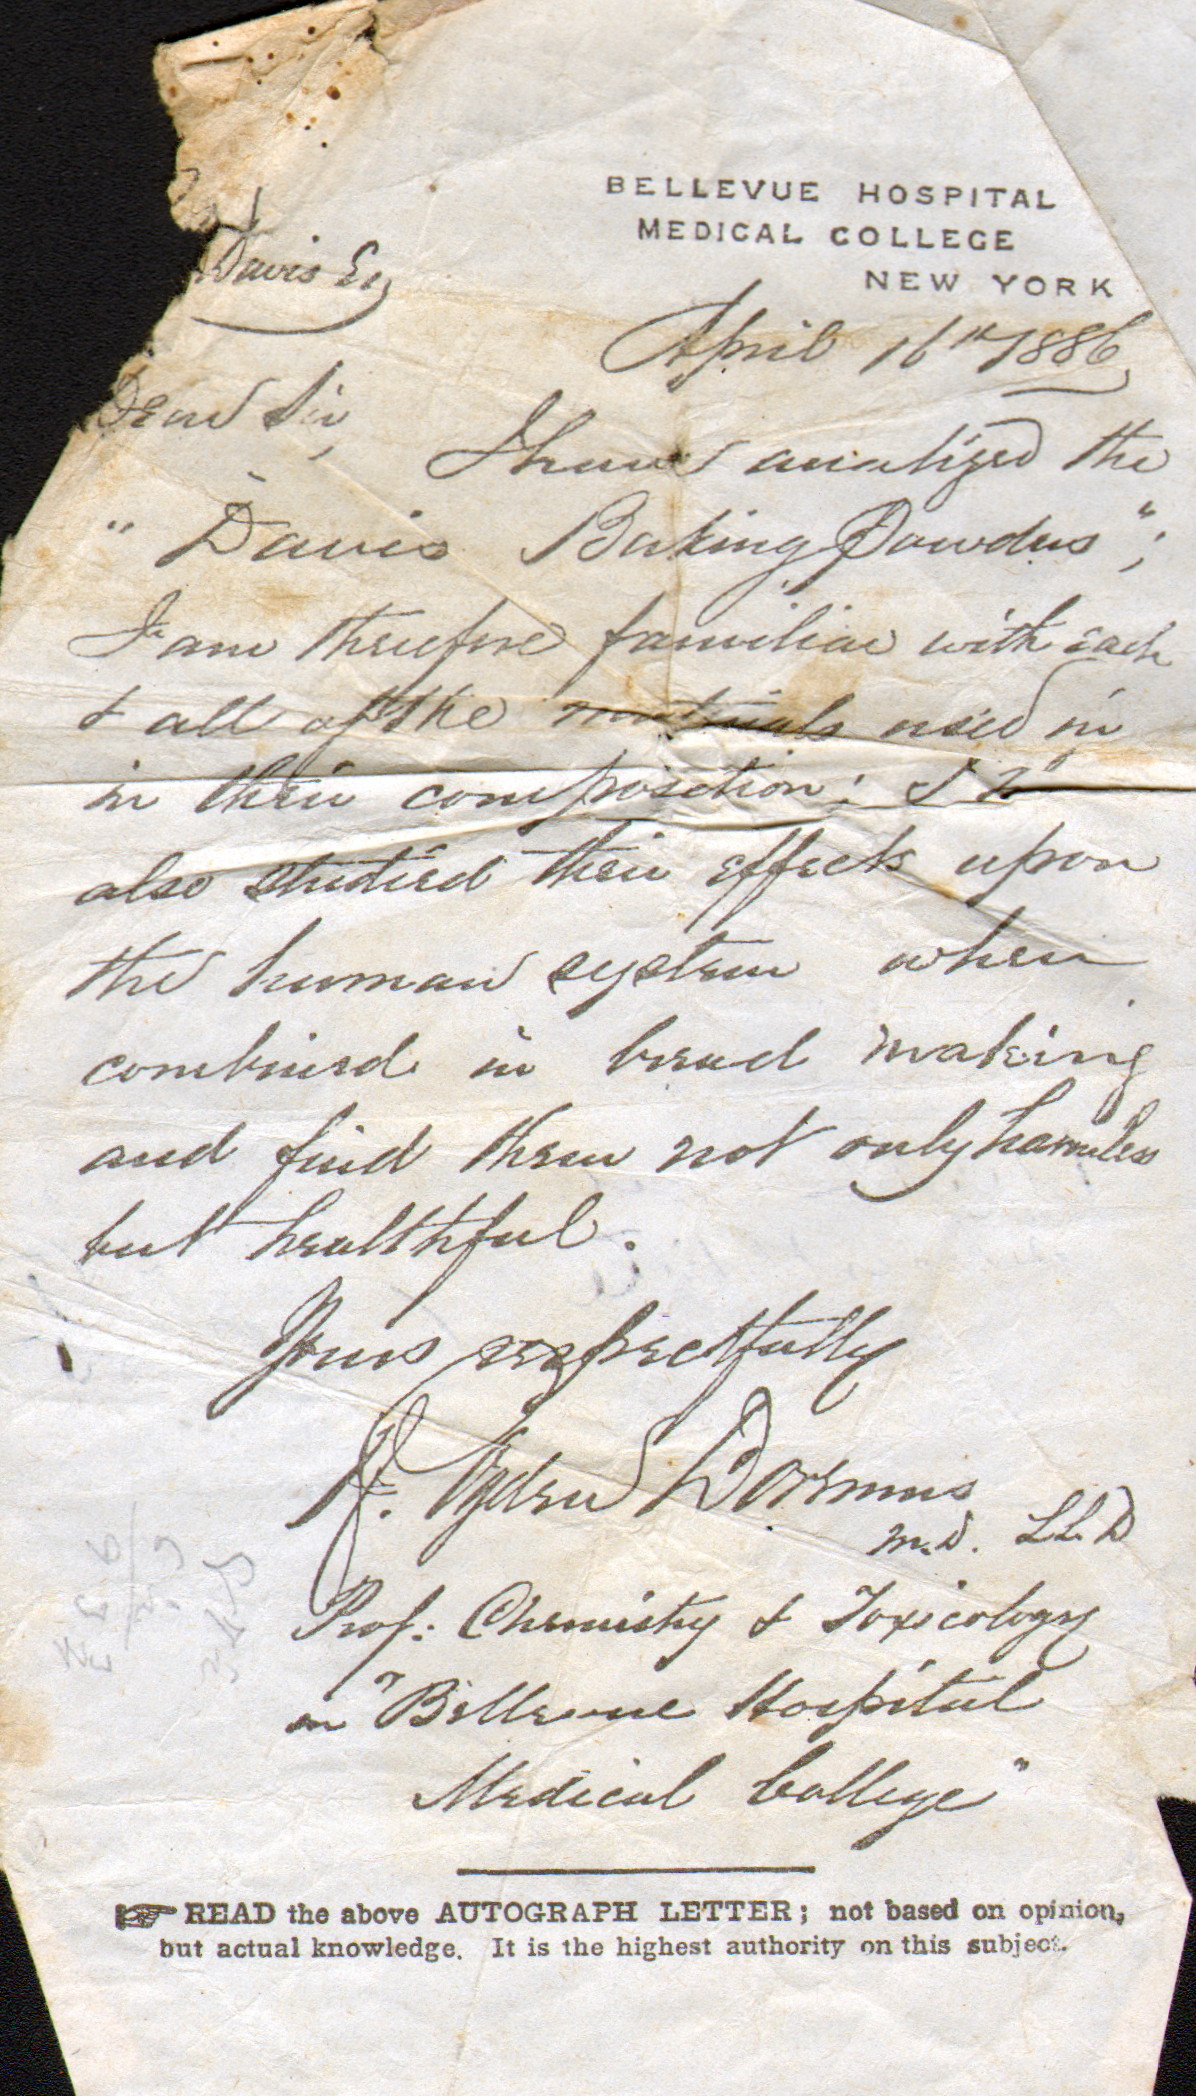 BELLEVUE HOSPITAL
MEDICAL COLLEGE
NEW YORK
Davis Esq
April 16th 1886
Dear Sir,
I have analized the
"Davis Baking Powders";
I am therefore familiar with each
& all of the materials used in
in their composition; I
also studied their effects upon
the human system when
combined in bread making
and find them not only harmless
but healthful.
Yours respectfully
R. Ogden Doremus
M.D. LL.D
Prof: Chemistry & Toxicology
in "Bellevue Hospital
Medical College"
☞ READ the above AUTOGRAPH LETTER; not based on opinion,
but actual knowledge. It is the highest authority on this subject.